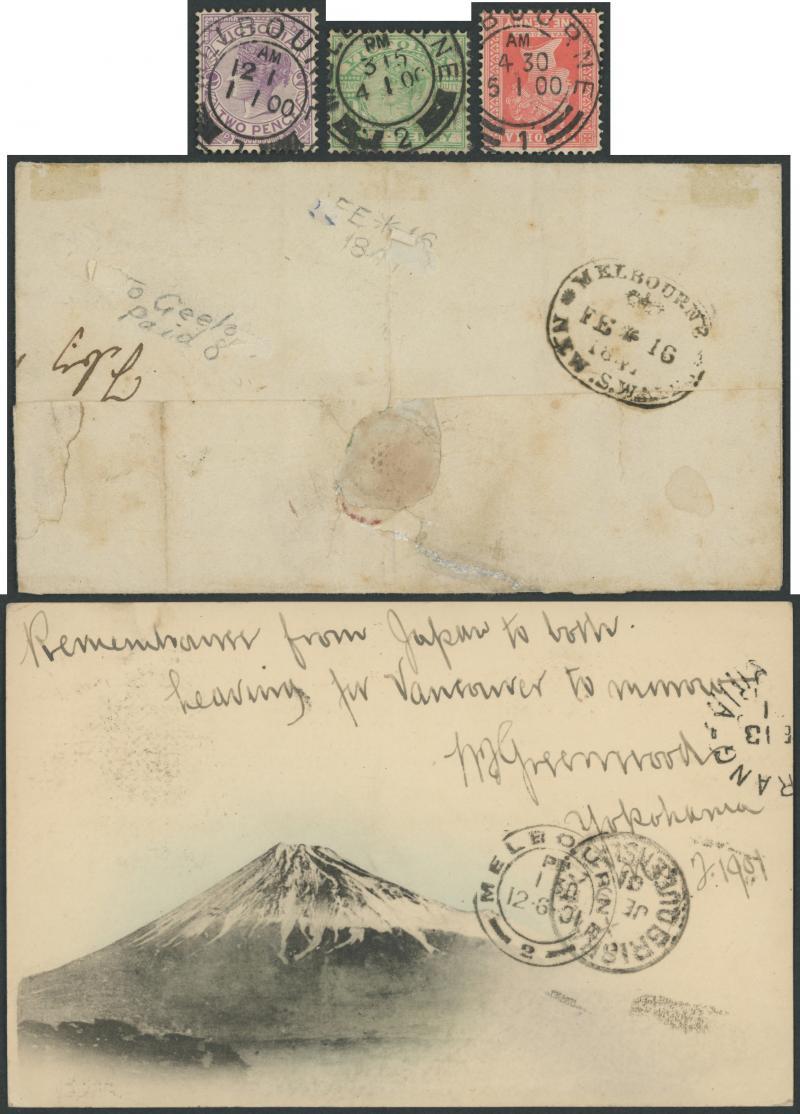 ELBOUR
AM
12 1
1 1 00
VICTORIA
TWO PENCE
NE
PM
3 15
4 1 00
2
BOURNE
AM
4 30
5 1 00
1
NE PENNY
FE * 16
184
To Geelo
paid 8
Feby
MELBOURNE
FE * 16
184
N.S.W.
Remembrance from Japan to both.
Leaving for Vancouver to morrow
W Greenwood
Yokohama
2.1901
RANG
13
VIA
1
MELBOURNE
12·6·01
2
BRISB
QUEENSL
JE
01